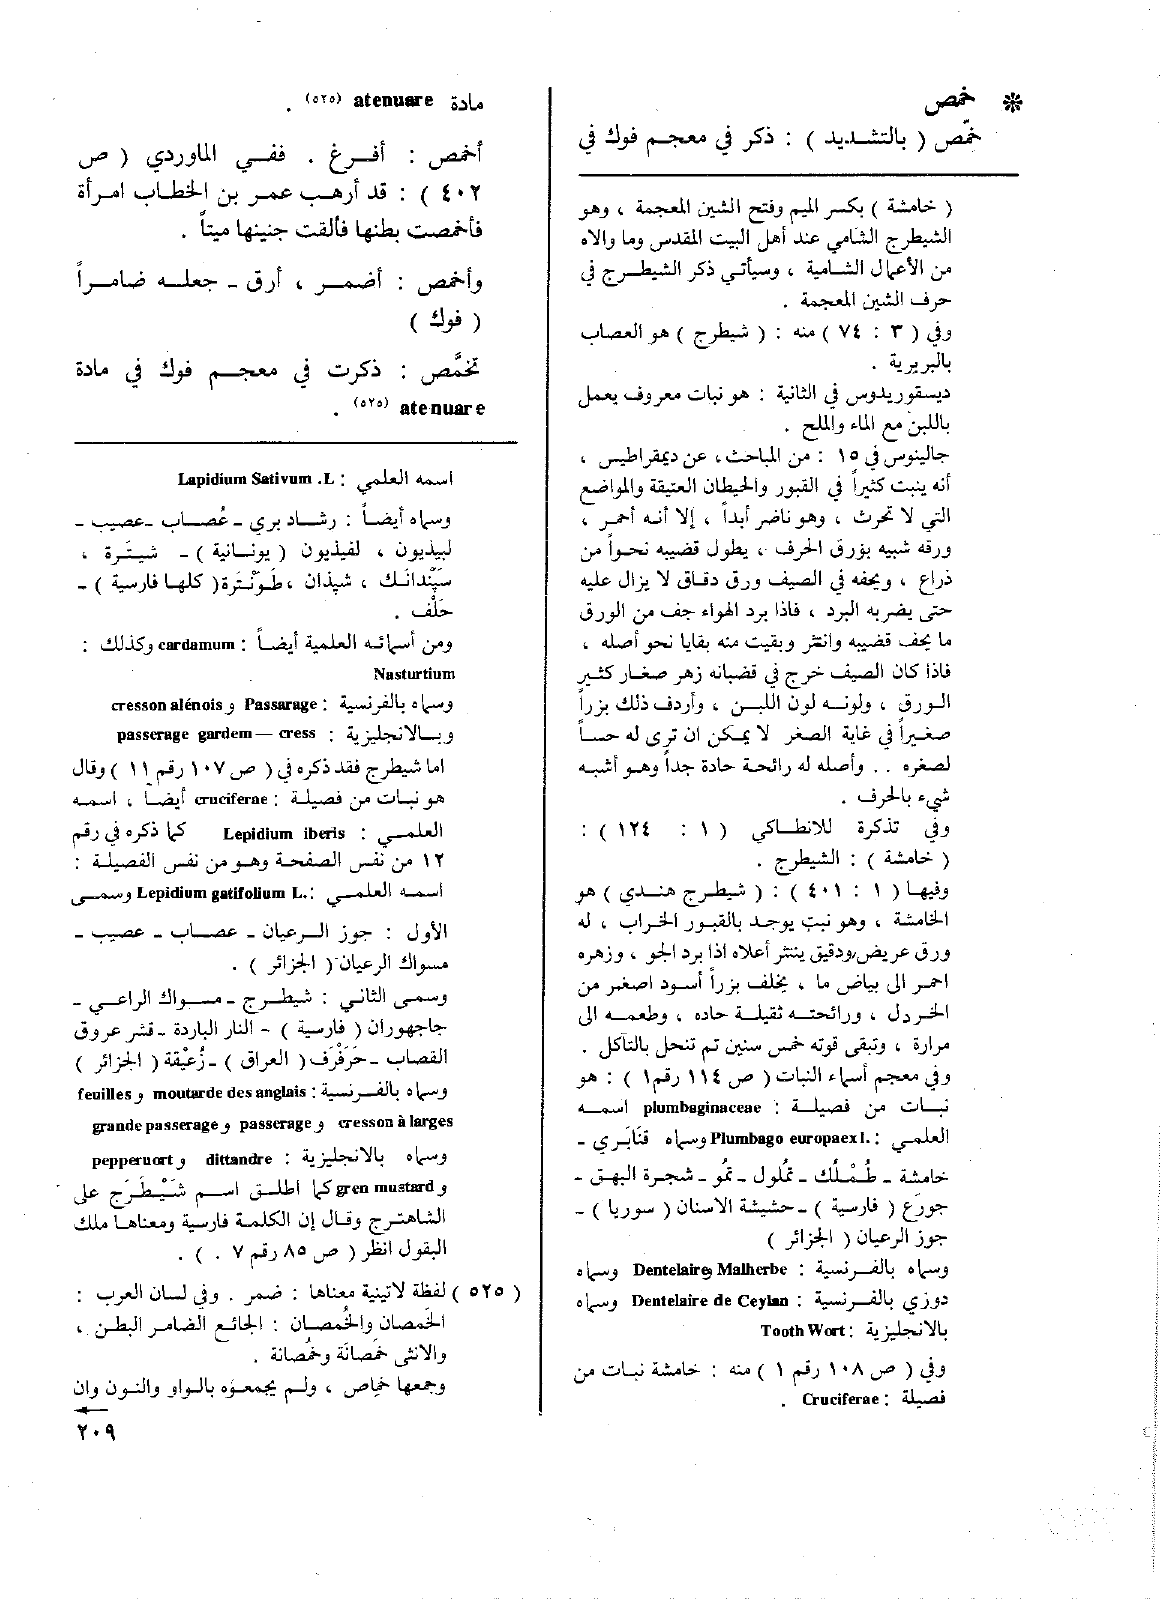 * خمص
خمّص ( بالتشديد ) : ذكر في معجم فوك في
مادة atenuare (٥٢٥) .
أخمص : أفرغ . ففي الماوردي ( ص
٤٠٢ ) : قد أرهب عمر بن الخطاب امرأة
فأخمصت بطنها فألقت جنينها ميتاً .
وأخمص : أضمر ، أرق ـ جعله ضامراً
( فوك )
تخمَّص : ذكرت في معجم فوك في مادة
atenuare (٥٢٥) .
( خامشة ) بكسر الميم وفتح الشين المعجمة ، وهو
الشيطرج الشامي عند أهل البيت المقدس وما والاه
من الأعمال الشامية ، وسيأتي ذكر الشيطرج في
حرف الشين المعجمة .
وفي ( ٣ : ٧٤ ) منه : ( شيطرج ) هو العصاب
بالبربرية .
ديسقوريدوس في الثانية : هو نبات معروف يعمل
باللبن مع الماء والملح .
جالينوس في ١٥ : من المباحث، عن ديمقراطيس ،
أنه ينبت كثيراً في القبور والحيطان العتيقة والمواضع
التي لا تحرث ، وهو ناضر أبداً ، إلا أنه أحمر ،
ورقه شبيه بورق الحرف ، يطول قضيبه نحواً من
ذراع ، ويحفه في الصيف ورق دقاق لا يزال عليه
حتى يضربه البرد ، فاذا برد الهواء جف من الورق
ما يحف قضيبه وانتثر وبقيت منه بقايا نحو أصله ،
فاذا كان الصيف خرج في قضبانه زهر صغار كثير
الورق ، ولونه لون اللبن ، وأردف ذلك بزراً
صغيراً في غاية الصغر لا يمكن ان ترى له حساً
لصغره . . وأصله له رائحة حادة جداً وهو أشبه
شيء بالحرف .
وفي تذكرة للانطاكي ( ١ : ١٢٤ ) :
( خامشة ) : الشيطرج .
وفيها ( ١ : ٤٠١ ) : ( شيطرج هندي ) هو
الخامشة ، وهو نبت يوجد بالقبور الخراب ، له
ورق عريض ودقيق ينتثر أعلاه اذا برد الجو ، وزهره
احمر الى بياض ما ، يخلف بزراً أسود اصغر من
الخردل ، ورائحته ثقيلة حاده ، وطعمه الى
مرارة ، وتبقى قوته خمس سنين تم تنحل بالتآكل .
وفي معجم أسماء النبات ( ص ١١٤ رقم ١ ) : هو
نبات من فصيلة : plumbaginaceae اسمه
العلمي : Plumbago europaex l. وسماه قنَابَري ـ
خامشة ـ طُمْلُك ـ تمْلُول ـ تمُو ـ شجرة البهق ـ
جوزَع ( فارسية ) ـ حشيشة الاسنان ( سوريا ) ـ
جوز الرعيان ( الجزائر )
وسماه بالفرنسية : Malherbe و Dentelaire وسماه
دوزي بالفرنسية : Dentelaire de Ceylan وسماه
بالانجليزية : Tooth Wort
وفي ( ص ١٠٨ رقم ١ ) منه : خامشة نبات من
فصيلة : Cruciferae .
اسمه العلمي : Lapidium Sativum .L
وسماه أيضاً : رشاد بري ـ عُصاب ـ عصيب ـ
لبيذيون ، لفيذيون ( يونانية ) ـ شيتَرة ،
سَيِّندانَك ، شيذان ، طَوْنَترة ( كلها فارسية ) ـ
حَلْف .
ومن أسمائه العلمية أيضاً : cardamum وكذلك :
Nasturtium
وسماه بالفرنسية : Passarage و cresson alénois
وبالانجليزية : passerage gardem — cress
اما شيطرج فقد ذكره في ( ص ١٠٧ رقم ١١ ) وقال
هو نبات من فصيلة : cruciferae أيضاً ، اسمه
العلمي : Lepidium iberis كما ذكره في رقم
١٢ من نفس الصفحة وهو من نفس الفصيلة :
اسمه العلمي : Lepidium gatifolium L. وسمى
الأول : جوز الرعيان ـ عصاب ـ عصيب ـ
مسواك الرعيان ( الجزائر ) .
وسمى الثاني : شيطرج ـ مسواك الراعي ـ
جاجهوران ( فارسية ) ـ النار الباردة ـ قشر عروق
القصاب ـ حَرَفْرَف ( العراق ) ـ زُعيْقة ( الجزائر )
وسماه بالفرنسية : moutarde des anglais و feuilles
cresson à larges و passerage و grande passerage
وسماه بالانجليزية : dittandre و pepperuort
و gren mustard كما اطلق اسم شَيْطَرَج على
الشاهترج وقال إن الكلمة فارسية ومعناها ملك
البقول انظر ( ص ٨٥ رقم ٧ . ) .
( ٥٢٥ ) لفظة لاتينية معناها : ضمر . وفي لسان العرب :
الخَمصان والخُمصان : الجائع الضامر البطن ،
والانثى خمصانَة وخمصانة .
وجمعها خماص ، ولم يجمعوه بالواو والنون وان
٢٠٩